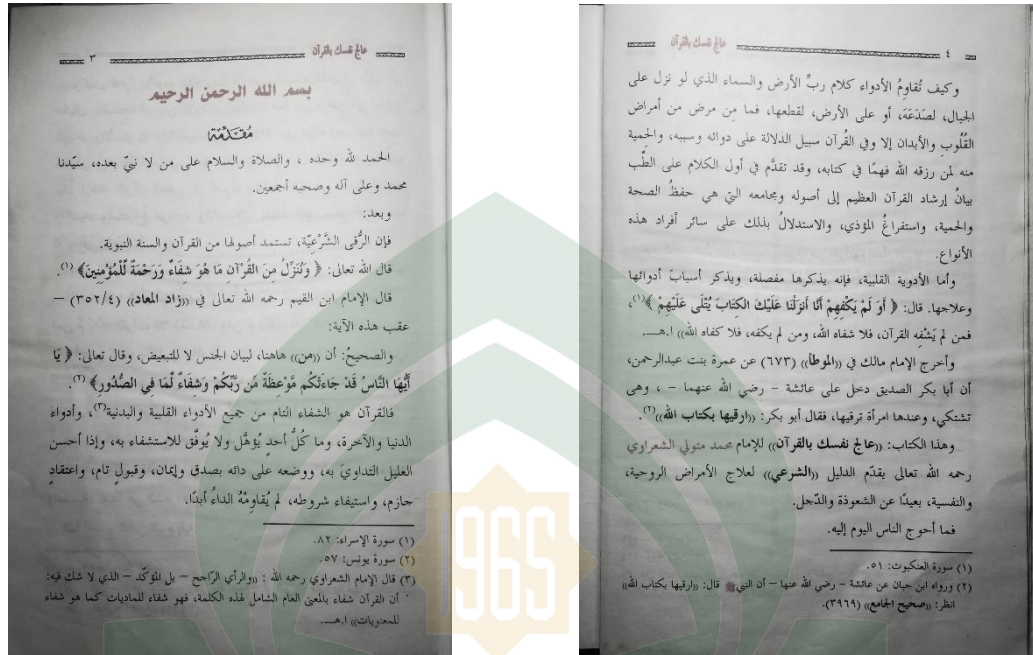 عالج نفسك بالقرآن ٣
بسم الله الرحمن الرحيم
مُقدِّمَة
الحمد لله وحده ، والصلاة والسلام على من لا نبيّ بعده، سيّدنا
محمد وعلى آله وصحبه أجمعين.
وبعد:
فإن الرُّقى الشَّرْعيّة، تستمد أصولها من القرآن والسنة النبوية.
قال الله تعالى: ﴿ وَنُنَزِّلُ مِنَ القُرْآنِ مَا هُوَ شِفَاءٌ وَرَحْمَةٌ لِّلْمُؤْمِنِينَ﴾ (١).
قال الإمام ابن القيم رحمه الله تعالى في ((زاد المعاد)) (٣٥٢/٤) –
عقب هذه الآية:
والصحيحُ: أن ((من)) هاهنا، لبيان الجنس لا للتبعيض، وقال تعالى: ﴿ يَا
أَيُّهَا النَّاسُ قَدْ جَاءَتْكُم مَّوْعِظَةٌ مِّن رَّبِّكُمْ وَشِفَاءٌ لِّمَا فِي الصُّدُورِ﴾ (٢).
فالقرآن هو الشفاء التام من جميع الأدواء القلبية والبدنية(٣)، وأدواء
الدنيا والآخرة، وما كُلُّ أحدٍ يُؤهَّل ولا يُوفَّق للاستشفاء به، وإذا أحسن
العليل التداويَ به، ووضعه على دائه بصدق وإيمان، وقبولٍ تام، واعتقادٍ
جازم، واستيفاء شروطه، لم يُقاومْهُ الداءُ أبدًا.
(١) سورة الإسراء: ٨٢.
(٢) سورة يونس: ٥٧.
(٣) قال الإمام الشعراوي رحمه الله : ((والرأي الرّاجح – بل المؤكّد – الذي لا شك فيه:
أن القرآن شفاء بالمعنى العام الشامل لهذه الكلمة، فهو شفاء للماديات كما هو شفاء
للمعنويات)) ا.هـ.
عالج نفسك بالقرآن ٤
وكيف تُقاوِمُ الأدواء كلام ربِّ الأرض والسماء الذي لو نزل على
الجبال، لصَدَعَهَ، أو على الأرض، لقطعها، فما مِن مرض من أمراض
القُلُوبِ والأبدان إلا وفي القُرآن سبيل الدلالة على دوائه وسببه، والحِمية
منه لمن رزقه الله فهمًا في كتابه، وقد تقدَّم في أول الكلام على الطِّب
بيانُ إرشاد القرآن العظيم إلى أصوله ومجامعه التي هي حفظُ الصحة
والحمية، واستفراغُ المؤذي، والاستدلالُ بذلك على سائر أفراد هذه
الأنواع.
وأما الأدوية القلبية، فإنه يذكرها مفصلة، ويذكر أسبابَ أدوائها
وعلاجها. قال: ﴿ أَوَ لَمْ يَكْفِهِمْ أَنَّا أَنزَلْنَا عَلَيْكَ الكِتَابَ يُتْلَى عَلَيْهِمْ ﴾(١)،
فمن لم يَشْفِه القرآن، فلا شفاه الله، ومن لم يكفه، فلا كفاه الله)) ا.هـ.
وأخرج الإمام مالك في ((الموطأ)) (٦٧٣) عن عمرة بنت عبدالرحمن،
أن أبا بكر الصديق دخل على عائشة – رضي الله عنهما – ، وهى
تشتكي، وعندها امرأة ترقيها، فقال أبو بكر: ((ارقيها بكتاب الله))(٢).
وهذا الكتاب: ((عالج نفسك بالقرآن)) للإمام محمد متولي الشعراوي
رحمه الله تعالى يقدّم الدليل ((الشرعي)) لعلاج الأمراض الروحية،
والنفسية، بعيدًا عن الشعوذة والدّجل.
فما أحوج الناس اليوم إليه.
(١) سورة العنكبوت: ٥١.
(٢) ورواه ابن حبان عن عائشة – رضي الله عنها – أن النبي ﷺ قال: ((ارقيها بكتاب الله))
انظر: ((صحيح الجامع)) (٣٩٦٩).
1965